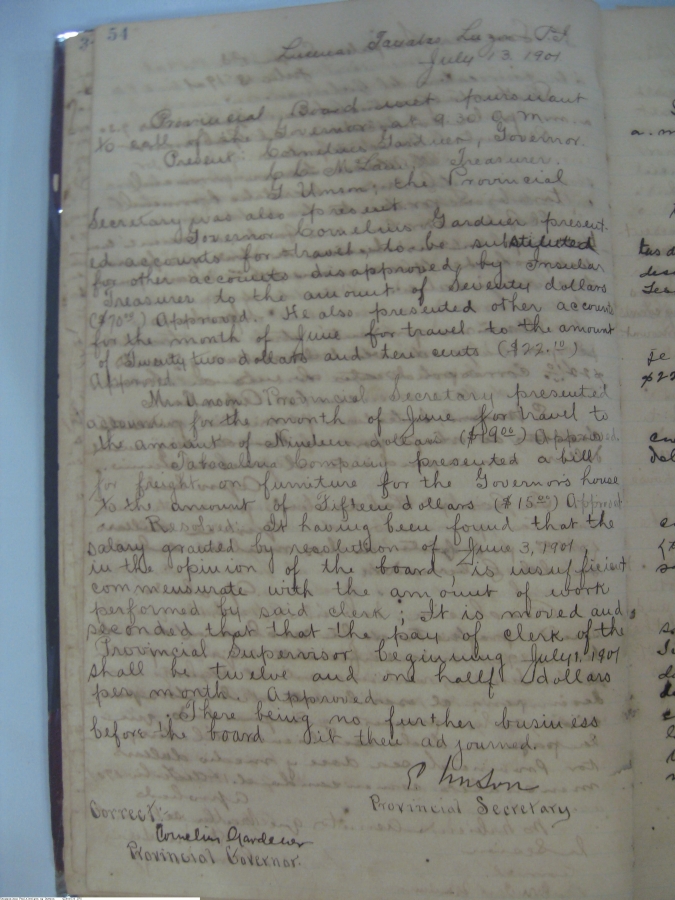 54
Lucena Tayabas Luzon P.I.
July 13 1901
Provincial Board met pursuant
to call of the Governor at 9.30 a.m.
Present: Cornelius Gardener, Governor.
Treasurer.
G Unson, the Provincial
Secretary was also present
Governor Cornelius Gardener present-
ed accounts for travel, to be substituted
for other accounts disapproved by Insular
Treasurer to the amount of Seventy dollars
($70.00) Approved. He also presented other accounts
for the month of June for travel to the amount
of Twenty two dollars and ten cents ($22.10)
Approved
Mr. Unson Provincial Secretary presented
accounts for the month of June for travel to
the amount of Nineteen dollars ($19.00) Approved.
Company presented a bill
for freight on furniture for the Governor's house
to the amount of Fifteen dollars ($15.00) Approved
It having been found that the
salary granted by resolution of June 3, 1901,
in the opinion of the board, is insufficient
commensurate with the amount of work
performed by said clerk; It is moved and
seconded that that the pay of clerk of the
Provincial Supervisor beginning July 1, 1901
shall be twelve and one hallf dollars
per month. Approved
There being no further business
before the board it then adjourned.
G Unson
Provincial Secretary
Correct:
Cornelius Gardener
Provincial Governor.